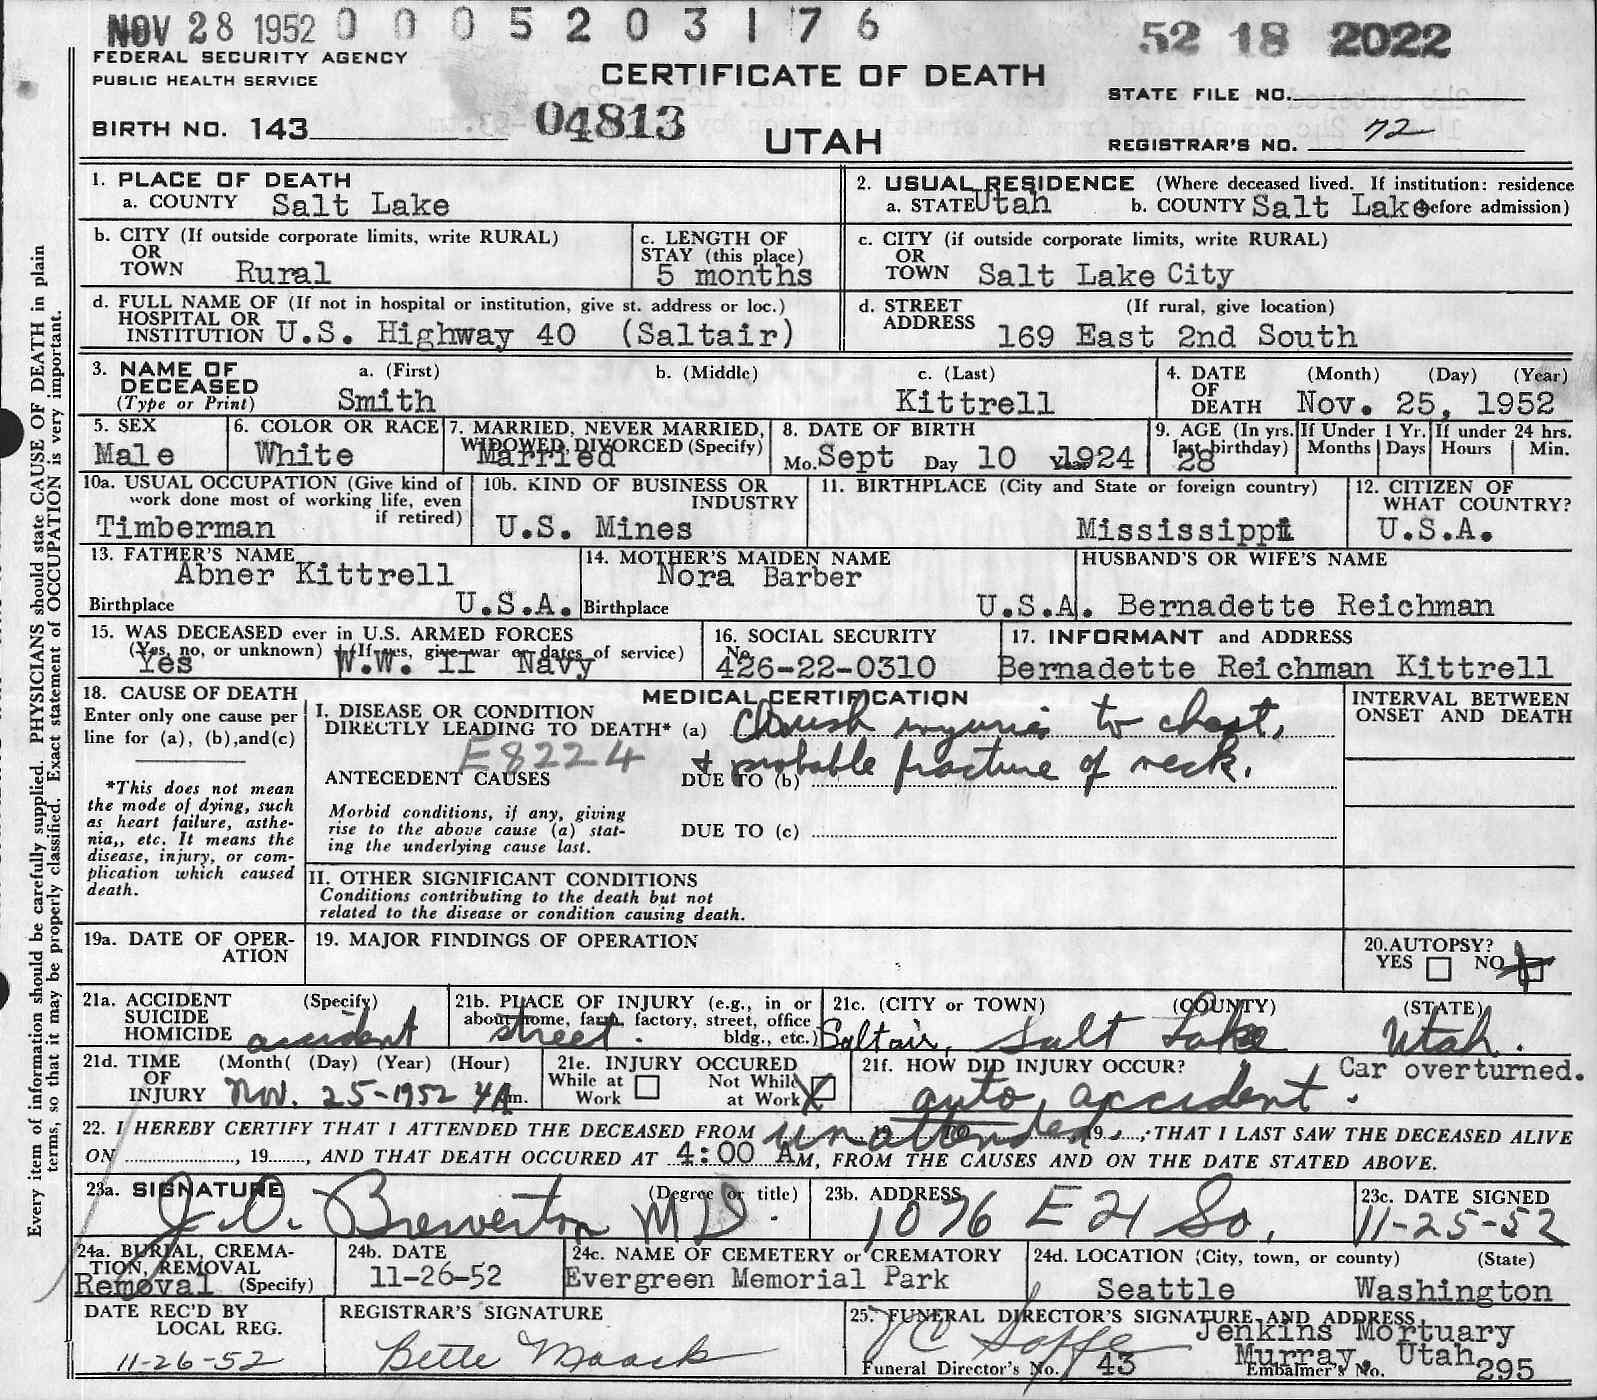 NOV 28 1952 0 0 0 5 2 0 3 1 7 6 52 18 2022
FEDERAL SECURITY AGENCY
PUBLIC HEALTH SERVICE
CERTIFICATE OF DEATH
STATE FILE NO.
BIRTH NO. 143 04813
UTAH
REGISTRAR'S NO. 72
1. PLACE OF DEATH
a. COUNTY Salt Lake
2. USUAL RESIDENCE (Where deceased lived. If institution: residence
a. STATE Utah b. COUNTY Salt Lake before admission)
b. CITY (If outside corporate limits, write RURAL)
OR
TOWN Rural
c. LENGTH OF
STAY (this place)
5 months
c. CITY (if outside corporate limits, write RURAL)
OR
TOWN Salt Lake City
d. FULL NAME OF (If not in hospital or institution, give st. address or loc.)
HOSPITAL OR
INSTITUTION U.S. Highway 40 (Saltair)
d. STREET (If rural, give location)
ADDRESS 169 East 2nd South
3. NAME OF a. (First) b. (Middle) c. (Last)
DECEASED
(Type or Print) Smith Kittrell
4. DATE (Month) (Day) (Year)
OF
DEATH Nov. 25, 1952
5. SEX
Male
6. COLOR OR RACE
White
7. MARRIED, NEVER MARRIED,
WIDOWED, DIVORCED (Specify)
Married
8. DATE OF BIRTH
Mo. Sept Day 10 Year 1924
9. AGE (In yrs.
last birthday)
28
If Under 1 Yr.
Months Days
If under 24 hrs.
Hours Min.
10a. USUAL OCCUPATION (Give kind of
work done most of working life, even
if retired)
Timberman
10b. KIND OF BUSINESS OR
INDUSTRY
U.S. Mines
11. BIRTHPLACE (City and State or foreign country)
Mississippi
12. CITIZEN OF
WHAT COUNTRY?
U.S.A.
13. FATHER'S NAME
Abner Kittrell
Birthplace U.S.A.
14. MOTHER'S MAIDEN NAME
Nora Barber
Birthplace U.S.A.
HUSBAND'S OR WIFE'S NAME
Bernadette Reichman
15. WAS DECEASED ever in U.S. ARMED FORCES
(Yes, no, or unknown) (If yes, give war or dates of service)
Yes W.W. II Navy
16. SOCIAL SECURITY
No.
426-22-0310
17. INFORMANT and ADDRESS
Bernadette Reichman Kittrell
18. CAUSE OF DEATH
Enter only one cause per
line for (a), (b),and(c)
*This does not mean
the mode of dying, such
as heart failure, asthe-
nia,, etc. It means the
disease, injury, or com-
plication which caused
death.
MEDICAL CERTIFICATION
I. DISEASE OR CONDITION
DIRECTLY LEADING TO DEATH* (a) Crush injuries to chest,
E8224 + probable fracture of neck.
ANTECEDENT CAUSES DUE TO (b)
Morbid conditions, if any, giving
rise to the above cause (a) stat-
ing the underlying cause last.
DUE TO (c)
INTERVAL BETWEEN
ONSET AND DEATH
II. OTHER SIGNIFICANT CONDITIONS
Conditions contributing to the death but not
related to the disease or condition causing death.
19a. DATE OF OPER-
ATION
19. MAJOR FINDINGS OF OPERATION
20.AUTOPSY?
YES NO
21a. ACCIDENT (Specify)
SUICIDE
HOMICIDE accident
21b. PLACE OF INJURY (e.g., in or
about home, farm, factory, street, office
bldg., etc.)
street.
21c. (CITY or TOWN) (COUNTY) (STATE)
Saltair, Salt Lake Utah.
21d. TIME (Month( (Day) (Year) (Hour)
OF
INJURY Nov. 25-1952 4 A m.
21e. INJURY OCCURED
While at Work Not While at Work X
21f. HOW DID INJURY OCCUR? Car overturned.
auto accident.
22. I HEREBY CERTIFY THAT I ATTENDED THE DECEASED FROM unattended, 19 TO 19, THAT I LAST SAW THE DECEASED ALIVE
ON , 19 , AND THAT DEATH OCCURED AT 4:00 AM, FROM THE CAUSES AND ON THE DATE STATED ABOVE.
23a. SIGNATURE (Degree or title)
J. O. Brewerton MD.
23b. ADDRESS
1076 E 21 So.
23c. DATE SIGNED
11-25-52
24a. BURIAL, CREMA-
TION, REMOVAL
Removal (Specify)
24b. DATE
11-26-52
24c. NAME OF CEMETERY or CREMATORY
Evergreen Memorial Park
24d. LOCATION (City, town, or county) (State)
Seattle Washington
DATE REC'D BY
LOCAL REG.
11-26-52
REGISTRAR'S SIGNATURE
Bette Maack
25. FUNERAL DIRECTOR'S SIGNATURE AND ADDRESS
Jenkins Mortuary
Murray, Utah
Funeral Director's No. 43 Embalmer's No. 295
Every item of information should be carefully supplied. PHYSICIANS should state CAUSE OF DEATH in plain
terms, so that it may be properly classified. Exact statement of OCCUPATION is very important.